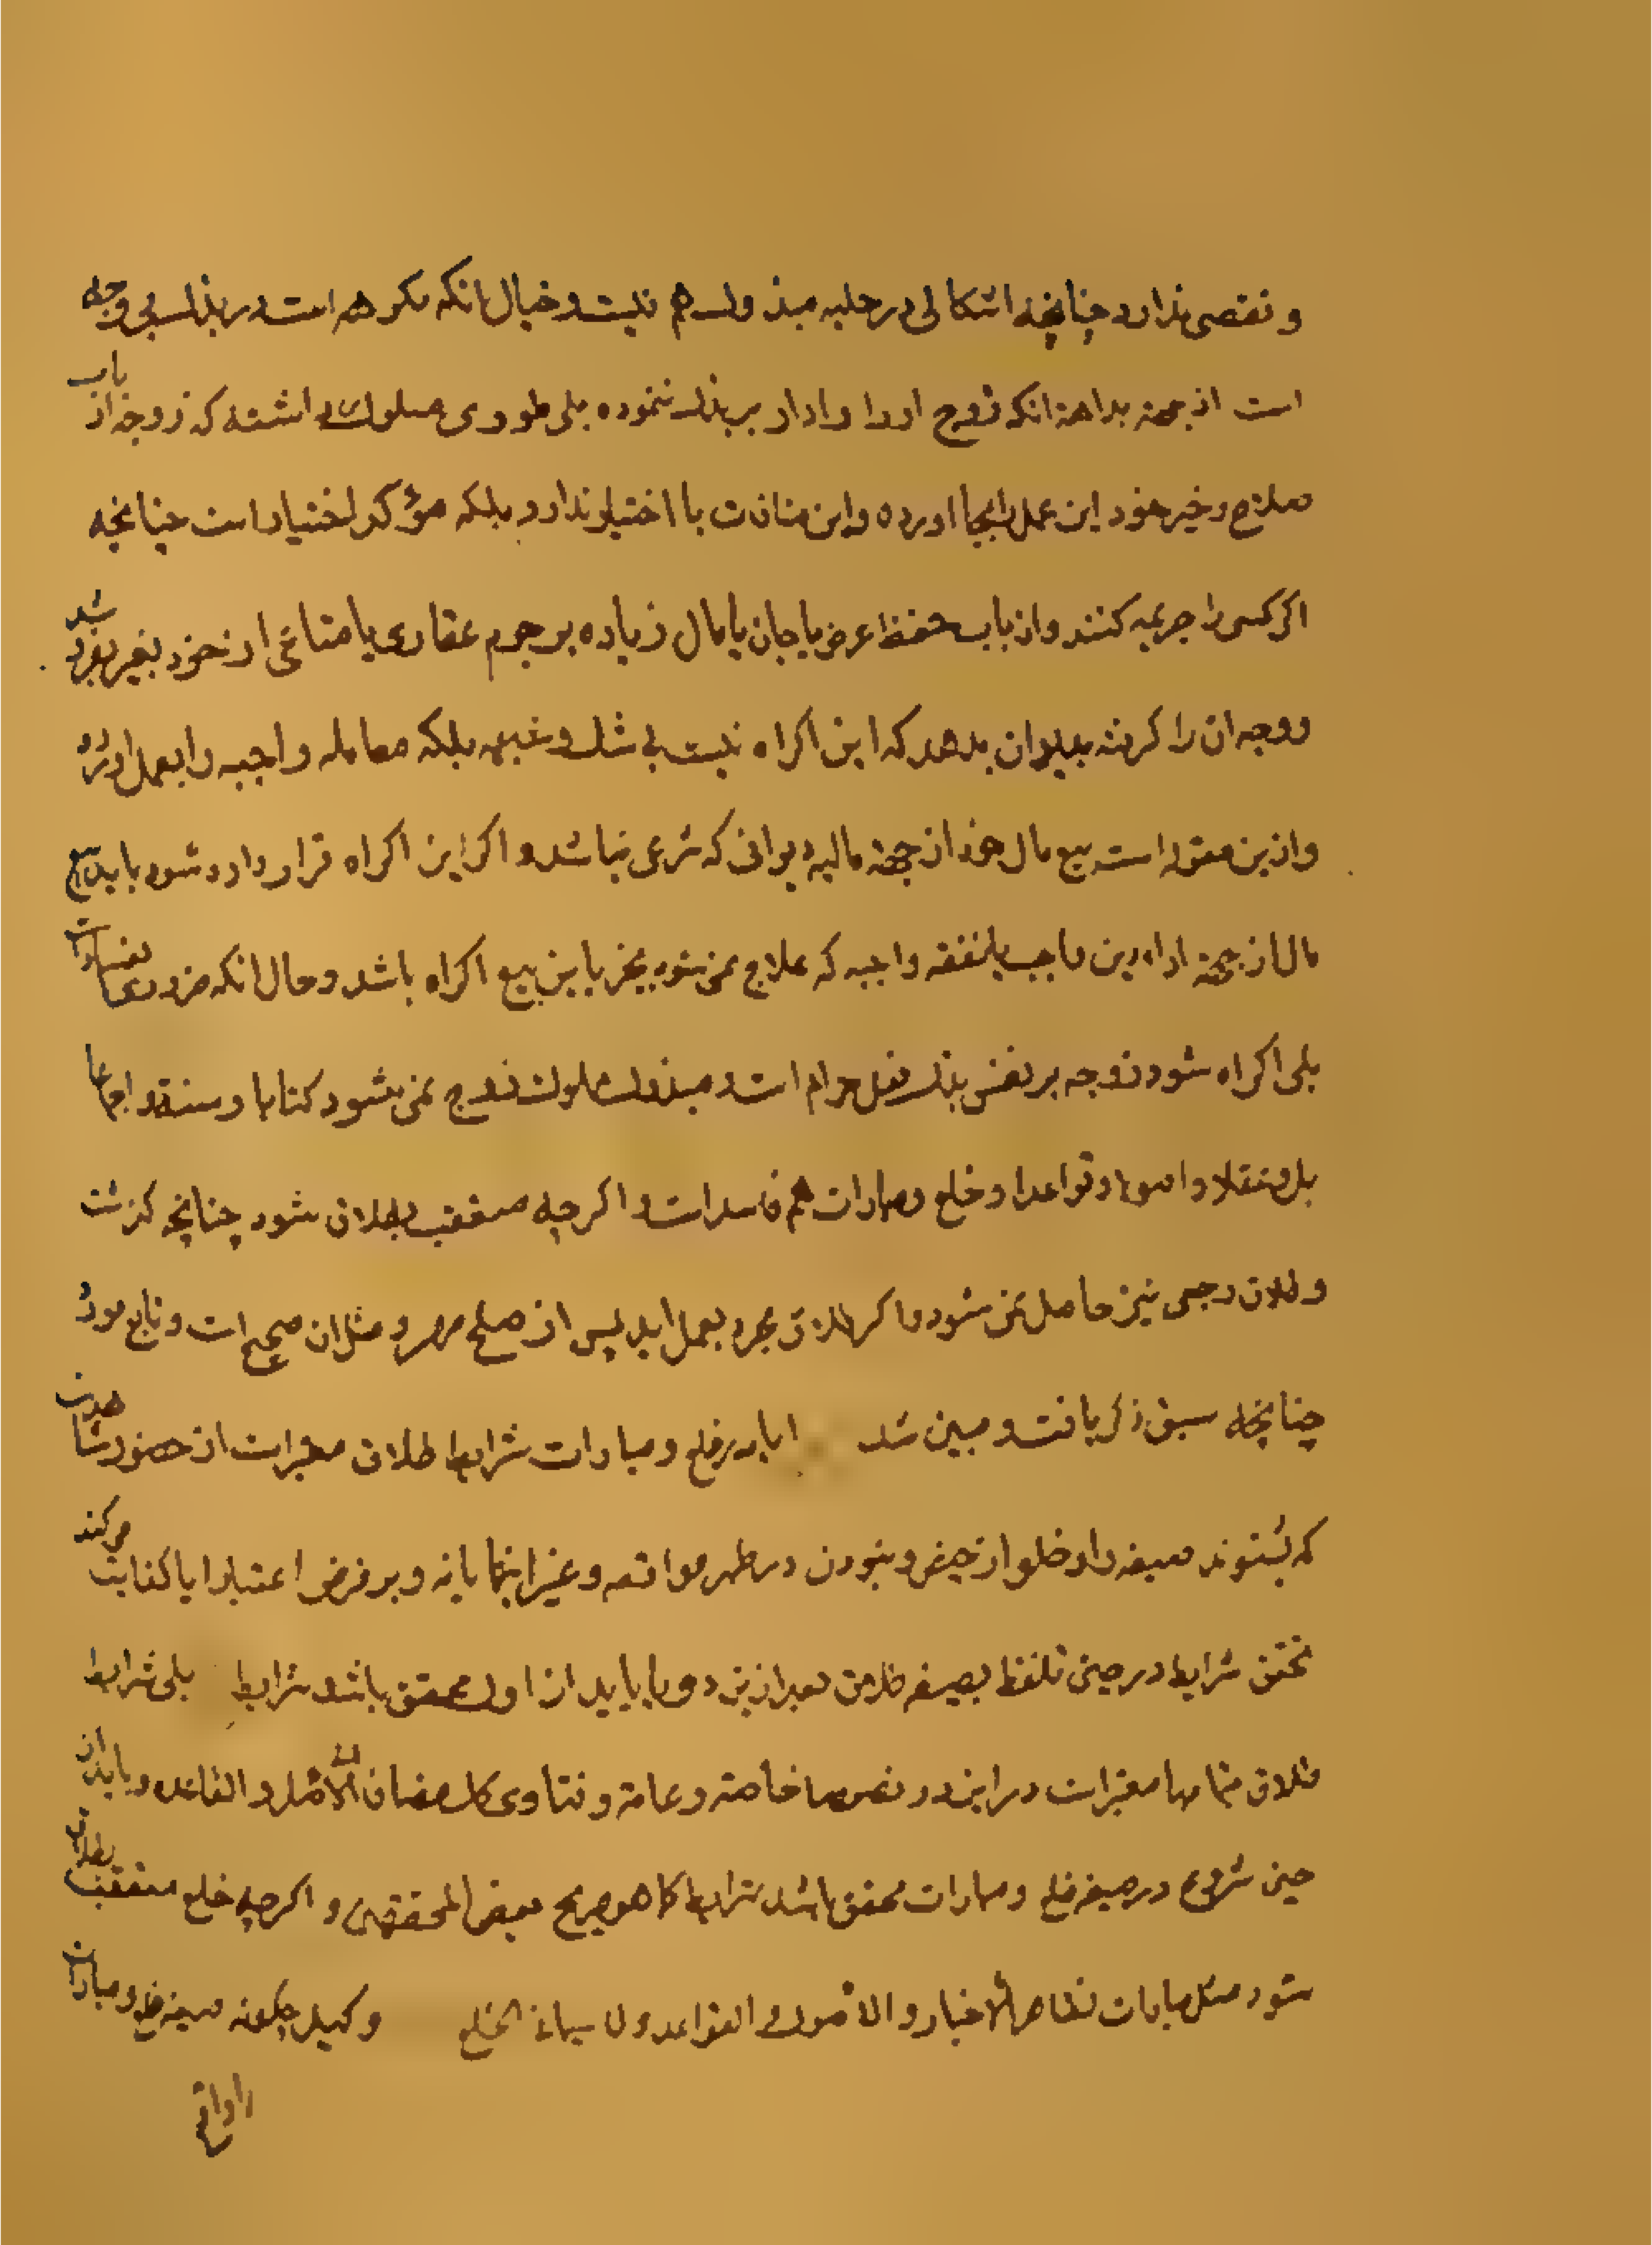 و نقصی ندارد چنانچه اشکالی در حلیه مبذول هم نیست و خیال انکه مکرهه است در بذل بی وجه
است از جهة بداهة انکه زوج او را وادار بر بذل ننموده بلی طوری سلوک داشته که زوجه از باب
صلاح و خیر خود این عمل را بجا اورده و این منافات با اختیار ندارد بلکه مؤکد اختیار است چنانچه
اکر کسی را جریمه کنند و از باب حفظ عرض یا جان یا مال زیاده بر جرم عقاری یا متاعی از خود بغیر بفروشد
و وجه ان را کرفته بدیوان بدهد که این اکراه نیست بی شک و شبهه بلکه معامله واجبه را بعمل اورده
و از ین مقوله است بیع مال خود از جهة مالیه دیوانی که شرعی نباشد و اکر این اکراه قرار داده شود باید بیع
مال از جهة اداء دین واجب یا نفقه واجبه که علاج نمی شود بجز باین بیع اکراه باشد و حال انکه ضروری الفساد است
بلی اکراه شود زوجه بر نفس بذل فعل حرام است و مبذول مملوک زوج نمی شود کتابا و سنة و اجماعا
بل و عقلا و اصولا و قواعدا و خلع و مبارات هم فاسد است و اکر چه متعقب بطلاق شود چنانچه کذشت
و طلاق رجعی نیز حاصل نمی شود و اکر طلاق مجرد بعمل اید پس از صلح مهر و مثل ان صحیح است و تابع مورد
چنانچه سبق ذکر یافت و مبین شد ایا در خلع و مبارات شرایط طلاق معتبر است از حضور شاهدین
که بشنوند صیغه را و خلو از حیض و نبودن در طهر مواقعه و غیر اینها یا نه و بر فرض اعتبار ایا کفایت میکند
تحقق شرایط در حین تلفظ بصیغه طلاق بعد از این دو یا باید از اول محقق باشد شرایط بلی شرایط
طلاق بتمامها معتبر است در این دو نصوصا خاصة و عامة و فتاوی کل مضافا الی الاصل و القاعده و باید از
حین شروع در صیغه خلع و مبارات محقق باشد شرایط کما هو صریح بعض المحققین و اکر چه خلع متعقب بطلاق
شود مثل مبارات لظاهر الاخبار و الاصول و القواعد و لا سیما فی الخلع وکیل چکونه صیغه خلع و مبارات
را